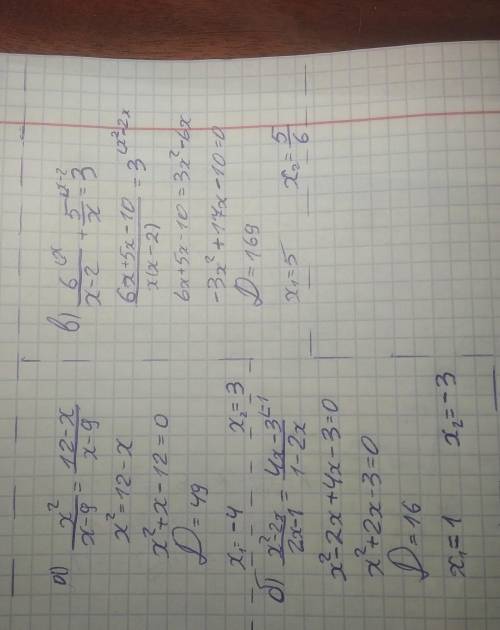 а) x²/(x-9) = (12-x)/(x-9)
x² = 12 - x
x² + x - 12 = 0
D = 49
x₁ = -4 x₂ = 3
б) (x² - 2x)/(2x-1) = (4x-3)/(1-2x) ⁽⁻¹
x² - 2x + 4x - 3 = 0
x² + 2x - 3 = 0
D = 16
x₁ = 1 x₂ = -3
в) 6/(x-2) ⁽ˣ + 5/x ⁽ˣ⁻² = 3
(6x + 5x - 10)/(x(x-2)) = 3 ⁽ˣ²⁻²ˣ
6x + 5x - 10 = 3x² - 6x
-3x² + 17x - 10 = 0
D = 169
x₁ = 5 x₂ = 5/6